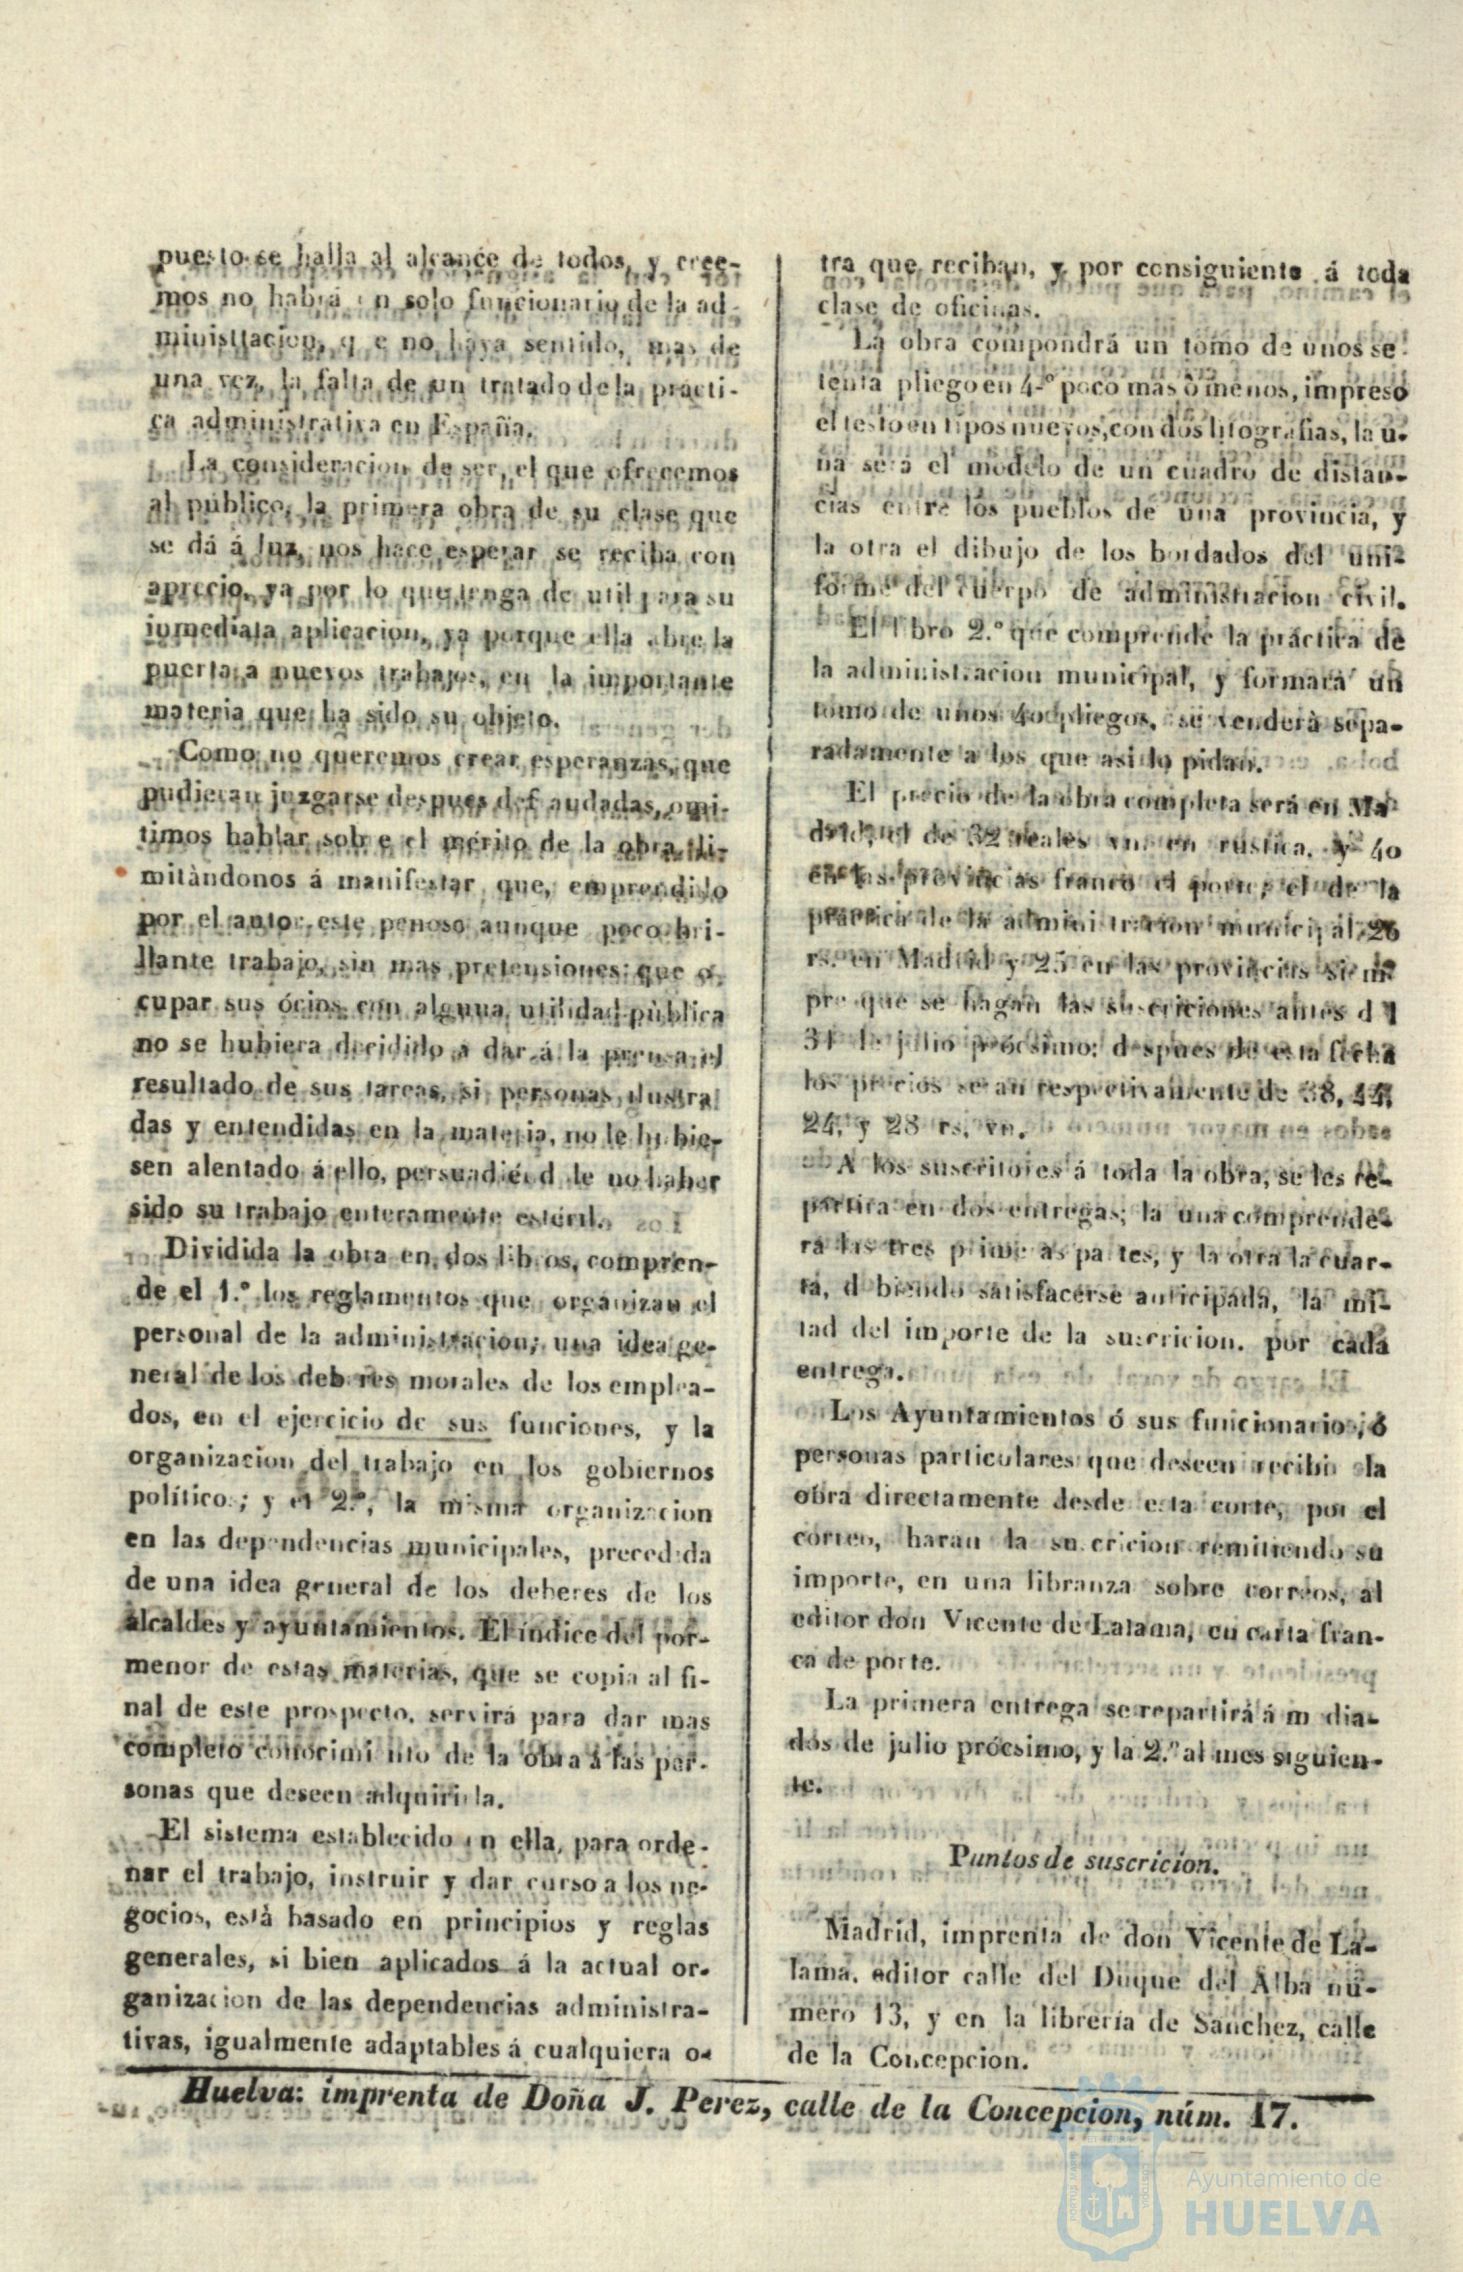 puesto se halla al alcance de todos, y cree-
mos no habrá un solo funcionario de la ad-
ministtacion, q e no haya sentido, mas de
una vez, la falta de un tratado de la prácti-
ca administrativa en España.
La consideracion de ser, el que ofrecemos
al público, la primera obra de su clase que
se dá á luz, nos hace esperar se reciba con
aprecio, ya por lo que tenga de util para su
inmediata aplicacion, ya porque ella abre la
puerta a nuevos trabajos, en la importante
materia que ha sido su objeto.
Como no queremos crear esperanzas, que
pudieran juzgarse despues def audadas, omi-
timos hablar sobre el mérito de la obra, li-
mitàndonos á manifestar que, emprendido
por el autor este penoso aunque poco bri-
llante trabajo, sin mas pretensiones que o-
cupar sus ócios con alguna utilidad pùblica
no se hubiera decidido a dar á la prensa el
resultado de sus tareas, si personas ilustra
das y entendidas en la materia, no le hubie-
sen alentado á ello, persuadiéndole no haber
sido su trabajo enteramente estéril.
Dividida la obra en dos libros, compren-
de el 1.º los reglamentos que organizan el
personal de la administracion; una idea ge-
neral de los deberes morales de los emplea-
dos, en el ejercicio de sus funciones, y la
organizacion del trabajo en los gobiernos
político; y el 2.º, la misma organizacion
en las dependencias municipales, precedida
de una idea general de los deberes de los
alcaldes y ayuntamientos. El índice del por-
menor de estas materias, que se copia al fi-
nal de este prospecto, servirá para dar mas
completo conocimiento de la obra á las per-
sonas que deseen adquirirla.
El sistema establecido en ella, para orde-
nar el trabajo, instruir y dar curso a los ne-
gocios, està basado en principios y reglas
generales, si bien aplicados á la actual or-
ganizacion de las dependencias administra-
tivas, igualmente adaptables á cualquiera o-
tra que reciban, y por consiguiente á toda
clase de oficinas.
La obra compondrá un tomo de unos se-
tenta pliego en 4.º poco mas ò menos, impreso
el testo en tipos nuevos, con dos litografias, la u-
na será el modelo de un cuadro de distan-
cias entre los pueblos de una provincia, y
la otra el dibujo de los bordados del uni-
forme del cuerpo de administracion civil.
El libro 2.º que comprende la práctica de
la administracion municipal, y formará un
tomo de unos 40 pliegos, se venderà sepa-
radamente a los que asi lo pidan.
El precio de la obra completa será en Ma
drid, el de 32 reales vn. en rústica, y 40
en las provincias franco el porte; el de la
práctica de la administracion municipal 26
rs. en Madrid y 25 en las provincias siem
pre que se hagan las suscriciones antes d l
31 de julio prócsimo: despues de esta fecha
los precios seran respectivamente de 38, 44,
24, y 28 rs. vn.
A los suscritores á toda la obra, se les re-
partira en dos entregas; la una comprende-
rá las tres primeras partes, y la otra la cuar-
ta, debiendo satisfacerse anticipada, la mi-
tad del importe de la suscricion, por cada
entrega.
Los Ayuntamientos ó sus funcionarios, ó
personas particulares que deseen recibir la
obra directamente desde esta corte, por el
correo, haran la suscricion remitiendo su
importe, en una libranza sobre correos, al
editor don Vicente de Lalama, en carta fran-
ca de porte.
La primera entrega se repartirá á m dia-
dos de julio prócsimo, y la 2.º al mes siguien-
te.
Puntos de suscricion.
Madrid, imprenta de don Vicente de La-
lama, editor calle del Duque del Alba nú-
mero 13, y en la librería de Sanchez, calle
de la Concepcion.
Huelva: imprenta de Doña J. Perez, calle de la Concepcion, núm. 17.
Ayuntamiento de
HUELVA